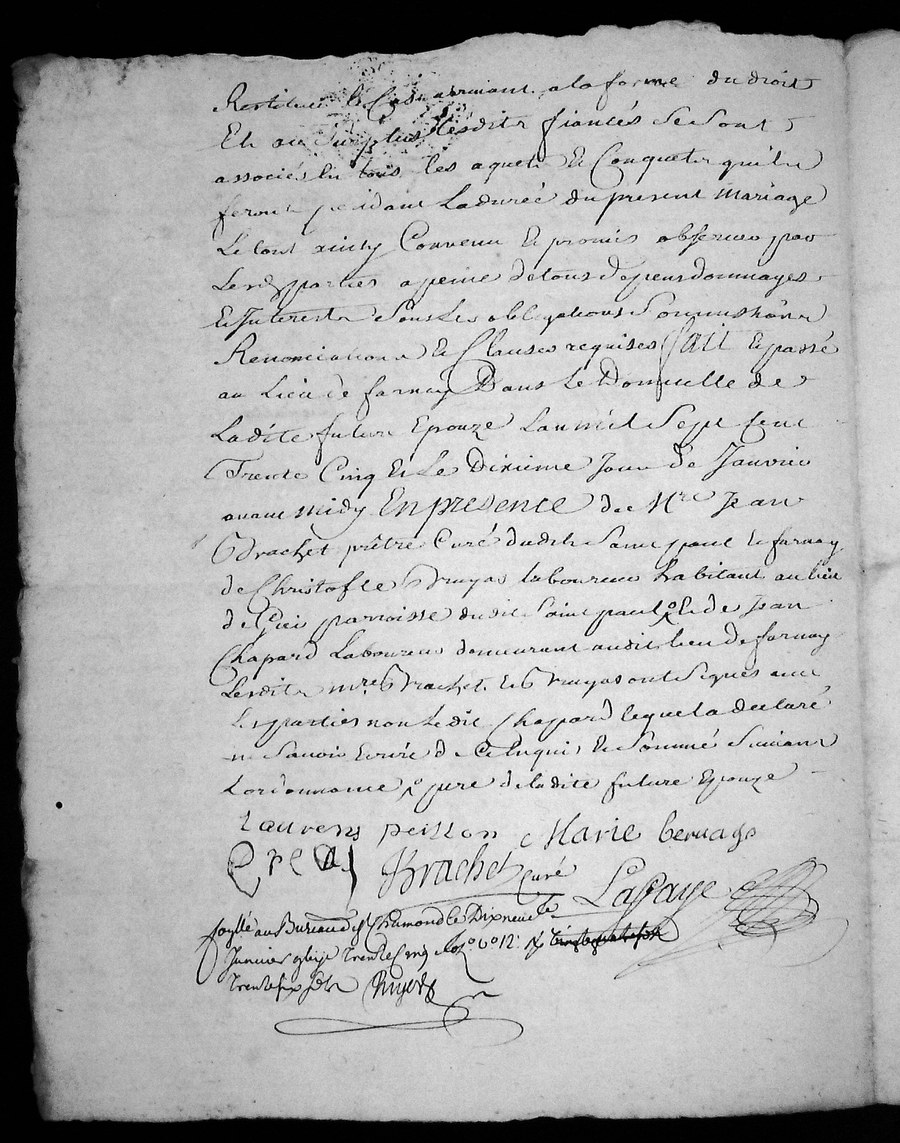 Restituer le Cas avenant a la forme du droit
Et au Surplus lesdits fiancés Se Sont
associés En tous les aquets Et Conquets quils
feront pendant La durée du present Mariage
Le tout ainsy Convenu Et promis observer par
Lesd parties a peine de tous depens dommages
Et Interests Sous Les obligations Soumissions
Renonciations Et Clauses requises fait Et passé
au Lieu de farnay Dans Le Domicille de
Ladite future Epouze Lan mil Sept Cent
Trente Cinq Et Le Dixieme Jour de Janvier
avant midy En presence de Mre Jean
Brachet prêtre Curé dudit Saint paul En farnay
de Christofle Bruyas laboureur habitant au lieu
de paroisse dudit Saint paul Et de Jean
Chapard Laboureur demeurant audit lieu de farnay
Lesdits mre Brachet Et Bruyas ont Signés avec
Les parties non Ledit Chapard lequel a declaré
ne Savoir Ecrire de Ce Enquis Et Sommé Suivant
Lordonnance pere de ladite future Epouze
Laurens peisson Marie bernags
Brachet Curé Lafaye
au Bureau de St Chamond le Dix neuf
Janvier Trente Cinq 12
Trente six